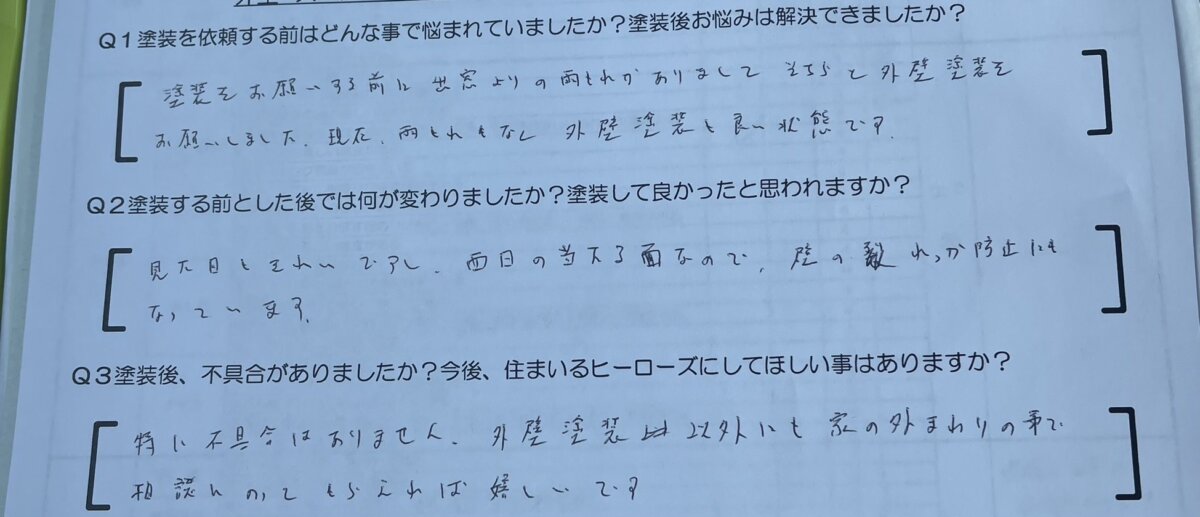 Q1塗装を依頼する前はどんな事で悩まれていましたか?塗装後お悩みは解決できましたか?
塗装をお願いする前に出窓よりの雨もれがありまして そちらと外壁塗装を
お願いしました。現在、雨もれもなし 外壁塗装も良い状態です。
Q2塗装する前とした後では何が変わりましたか?塗装して良かったと思われますか?
見た目もきれいですし、西日の当たる面なので、壁の
防止にも
なっています。
Q3塗装後、不具合がありましたか?今後、住まいるヒーローズにしてほしい事はありますか?
特に不具合はありません。外壁塗装以外にも家の外まわりの事で
相談にのってもらえれば嬉しいです